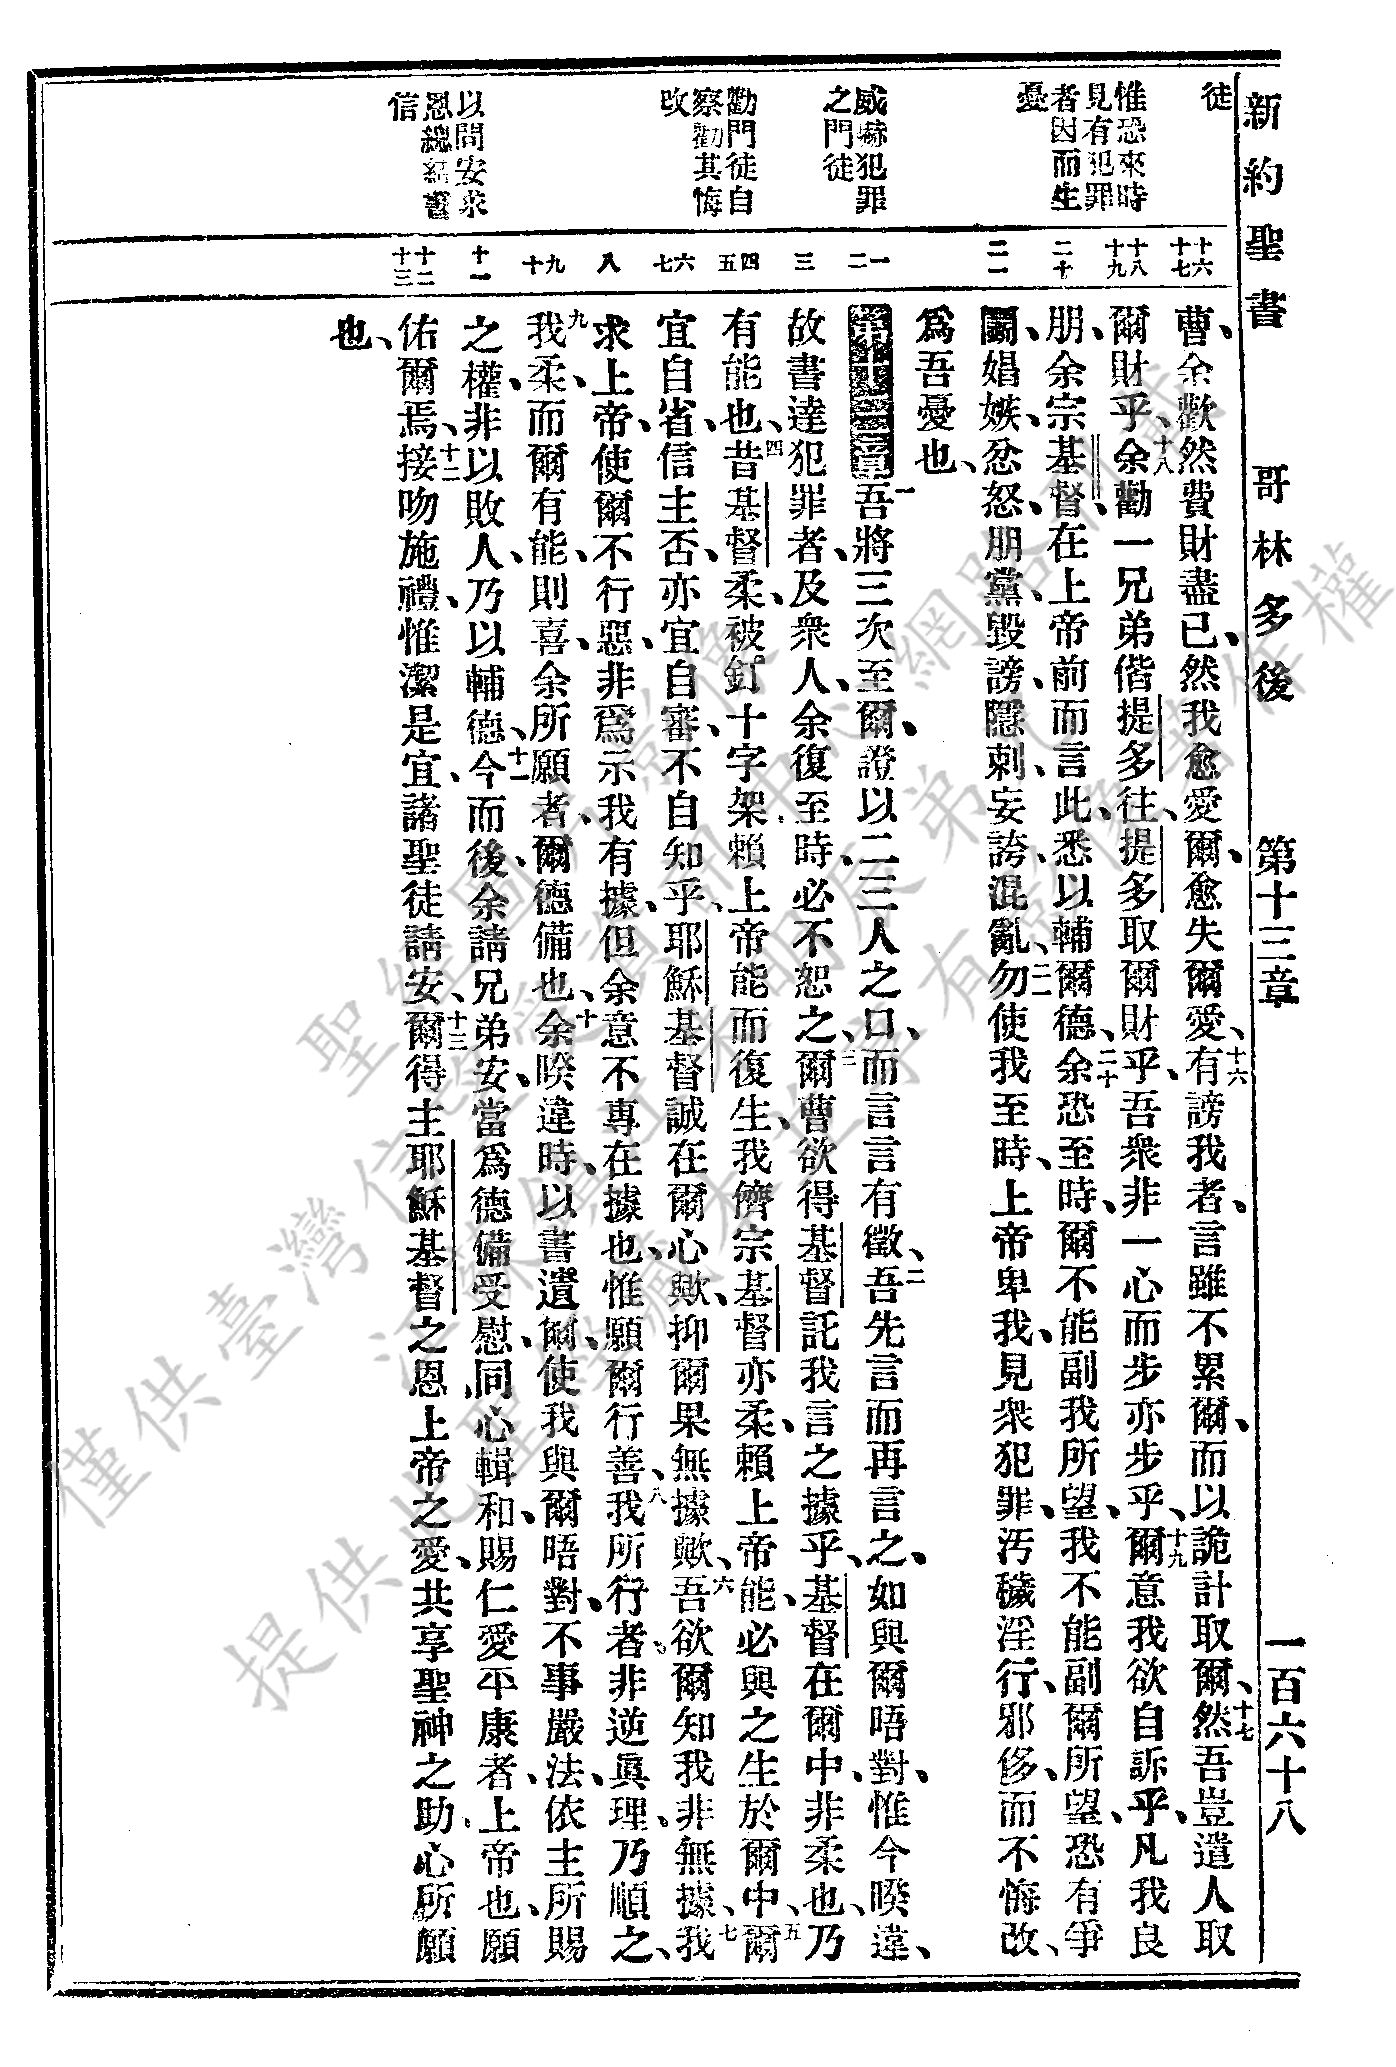 新約聖書 哥林多後 第十三章 一百六十八
徒
惟恐來時
見有犯罪
者因而生
憂
威嚇犯罪
之門徒
勸門徒自
察勸其悔
改
以問安求
恩總結書
信
十六 十七 十八 十九 二十 二一 一 二 三 四 五 六 七 八 九 十 十一 十二 十三
曹、余歡然費財盡己、然我愈愛爾、愈失爾愛、十六有謗我者、言雖不累爾、而以詭計取爾、十七然吾豈遣人取
爾財乎、十八余勸一兄弟偕提多往、提多取爾財乎、吾衆非一心而步亦步乎、十九爾意我欲自訴乎、凡我良
朋、余宗基督、在上帝前而言此、悉以輔爾德、二十余恐至時、爾不能副我所望、我不能副爾所望、恐有爭
鬭、娼嫉、忿怒、朋黨、毀謗、隱刺、妄誇、混亂、二一勿使我至時、上帝卑我、見衆犯罪、汚穢淫行、邪侈、而不悔改、
爲吾憂也、
第十三章 一吾將三次至爾、證以二三人之口、而言言有徵、二吾先言而再言之、如與爾晤對、惟今暌違、
故書達犯罪者、及衆人、余復至時、必不恕之、三爾曹欲得基督託我言之據乎、基督在爾中、非柔也、乃
有能也、四昔基督柔、被釘十字架、賴上帝能而復生、我儕宗基督亦柔、賴上帝能、必與之生於爾中、五爾
宜自省、信主否、亦宜自審、不自知乎、耶穌基督誠在爾心歟、抑爾果無據歟、六吾欲爾知我非無據、七我
求上帝、使爾不行惡、非爲示我有據、但余意不專在據也、惟願爾行善、八我所行者、非逆眞理、乃順之、
九我柔、而爾有能、則喜、余所願者、爾德備也、十余暌違時、以書遺爾、使我與爾晤對、不事嚴法、依主所賜
之權、非以敗人、乃以輔德、十一今而後、余請兄弟安、當爲德備受慰、同心輯和、賜仁愛平康者、上帝也、願
佑爾焉、十二接吻施禮、惟潔是宜、諸聖徒請安、十三爾得主耶穌基督之恩、上帝之愛、共享聖神之助、心所願
也、